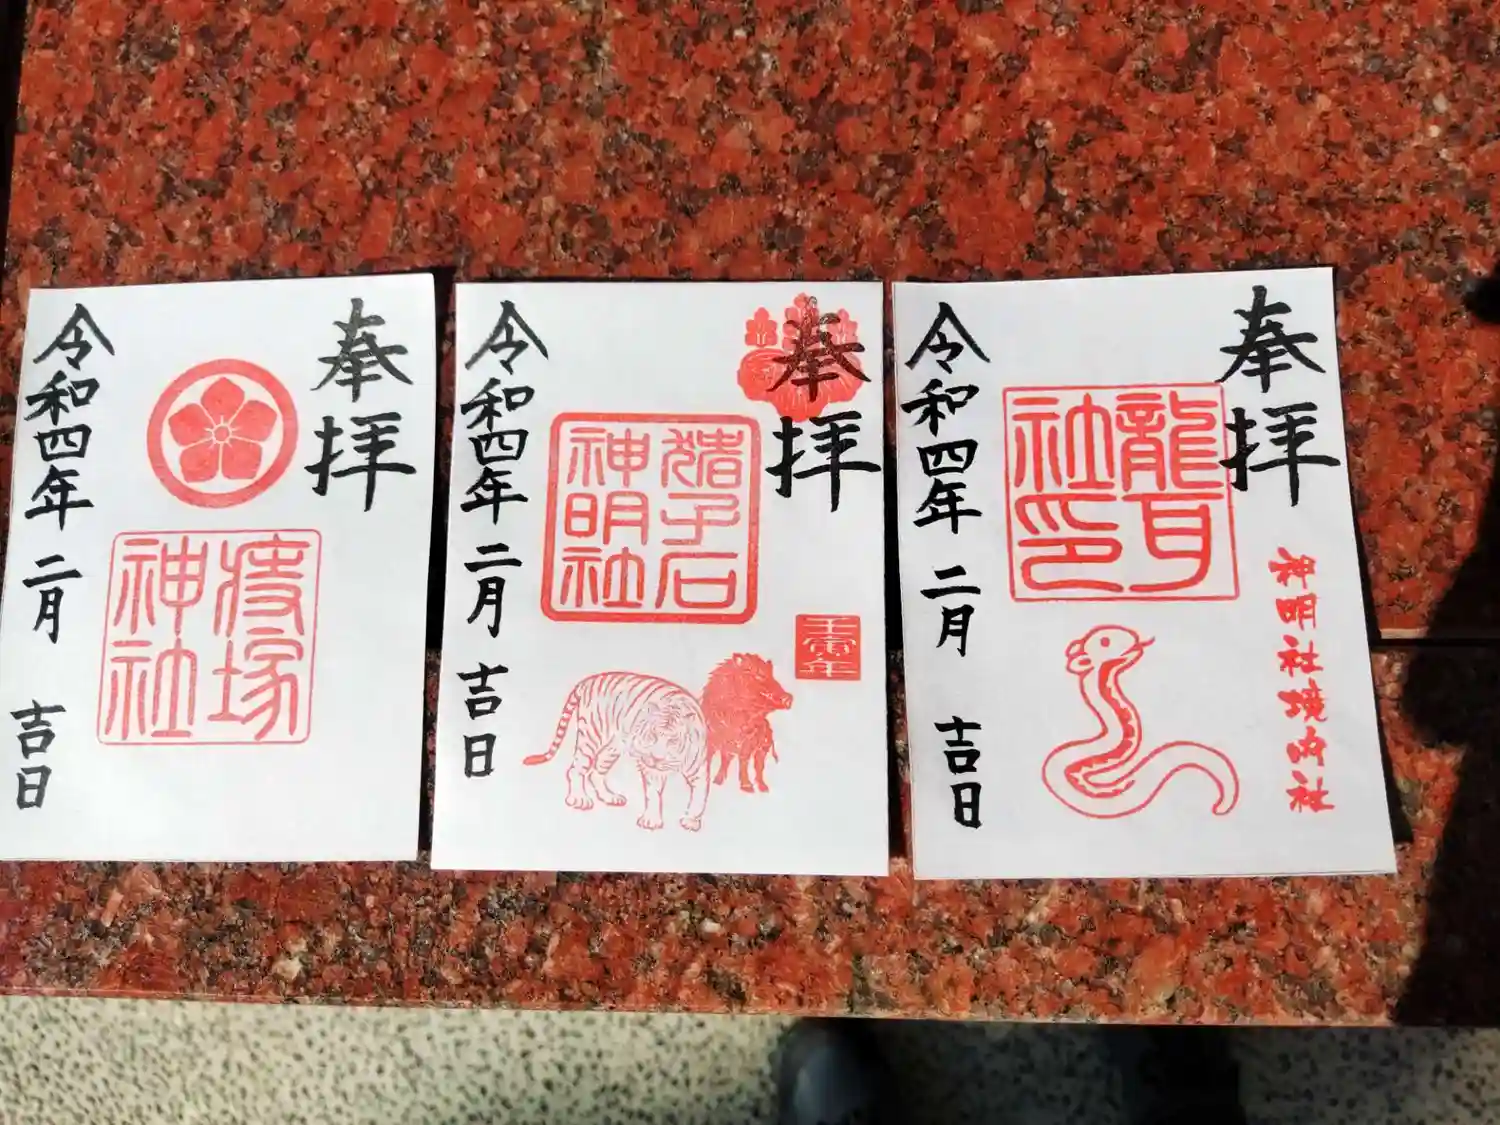 奉拝
塚
神社
令和四年 二月 吉日
奉拝
猪子石
神明社
壬寅年
令和四年 二月 吉日
奉拝
龍耳
社印
神明社境内社
令和四年 二月 吉日